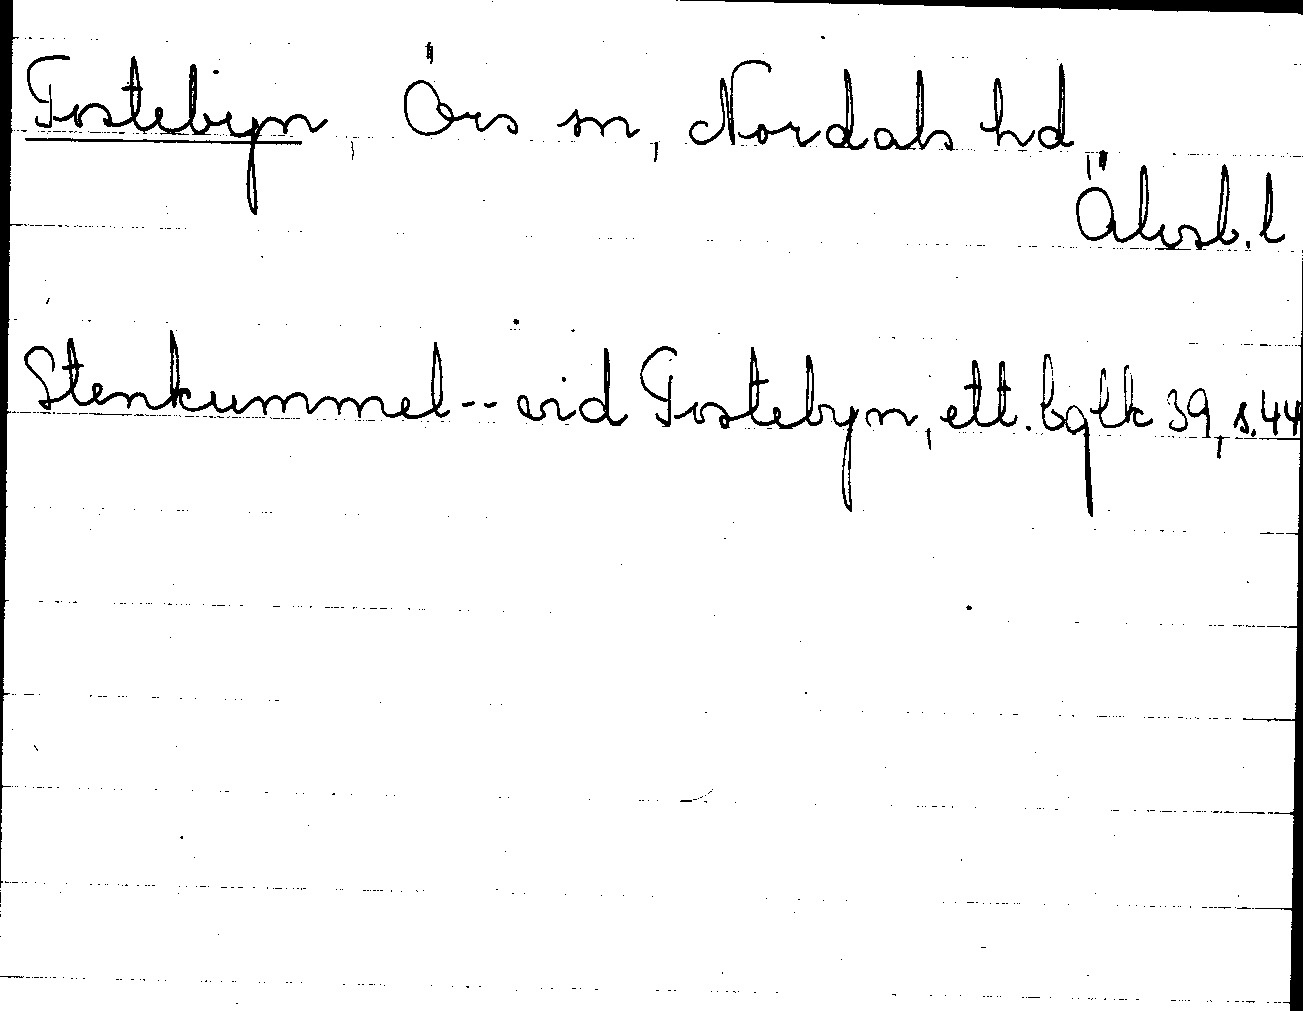 Tostebyn, Örs sn, Nordals hd,
Älvsb. l
Stenkummel -- vid Tostebyn, ett. bglk 39, s. 44